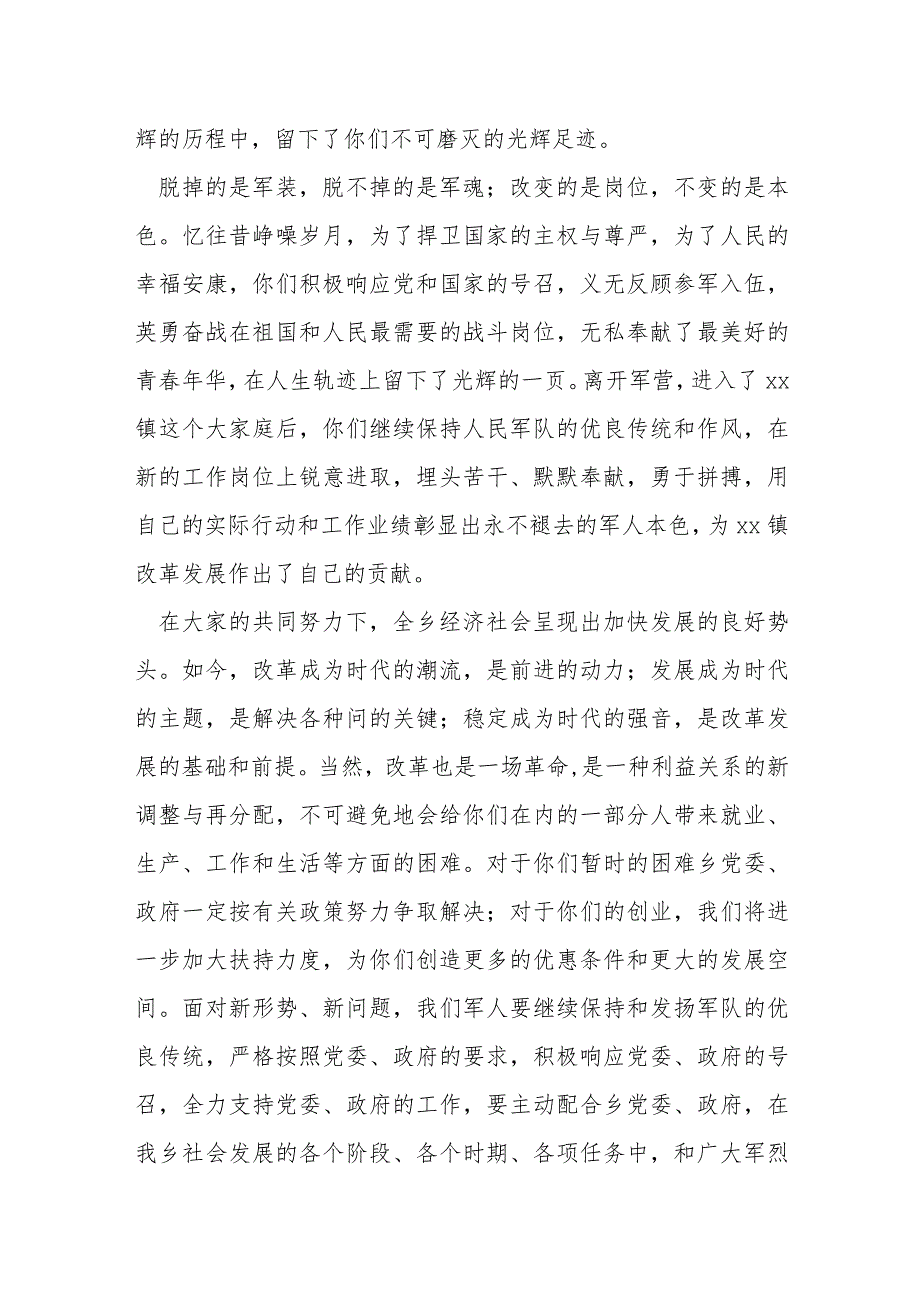 辉的历程中，留下了你们不可磨灭的光辉足迹。
脱掉的是军装，脱不掉的是军魂；改变的是岗位，不变的是本
色。忆往昔峥噪岁月，为了捍卫国家的主权与尊严，为了人民的
幸福安康，你们积极响应党和国家的号召，义无反顾参军入伍，
英勇奋战在祖国和人民最需要的战斗岗位，无私奉献了最美好的
青春年华，在人生轨迹上留下了光辉的一页。离开军营，进入了 xx
镇这个大家庭后，你们继续保持人民军队的优良传统和作风，在
新的工作岗位上锐意进取，埋头苦干、默默奉献，勇于拼搏，用
自己的实际行动和工作业绩彰显出永不褪去的军人本色，为 xx 镇
改革发展作出了自己的贡献。
在大家的共同努力下，全乡经济社会呈现出加快发展的良好势
头。如今，改革成为时代的潮流，是前进的动力；发展成为时代
的主题，是解决各种问的关键；稳定成为时代的强音，是改革发
展的基础和前提。当然，改革也是一场革命,是一种利益关系的新
调整与再分配，不可避免地会给你们在内的一部分人带来就业、
生产、工作和生活等方面的困难。对于你们暂时的困难乡党委、
政府一定按有关政策努力争取解决；对于你们的创业，我们将进
一步加大扶持力度，为你们创造更多的优惠条件和更大的发展空
间。面对新形势、新问题，我们军人要继续保持和发扬军队的优
良传统，严格按照党委、政府的要求，积极响应党委、政府的号
召，全力支持党委、政府的工作，要主动配合乡党委、政府，在
我乡社会发展的各个阶段、各个时期、各项任务中，和广大军烈